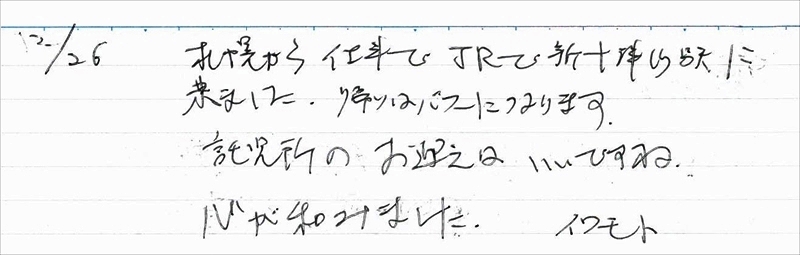 12/26 札幌から仕事でJRで新十津川駅に
来ました. 帰りはバスになります.
託児所のお迎えはいいですね.
心が和みました. イワモト